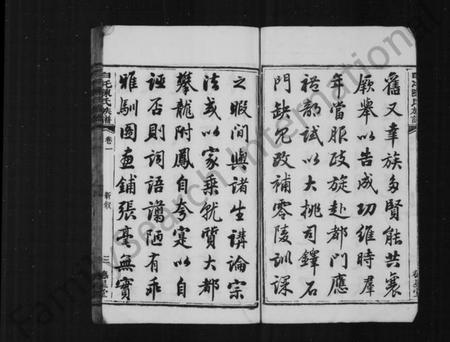 舊又幸族多賢能共襄
厥舉以告成功維時群
年當服政旋赴都門應
禮部試以大挑司鐸石
門缺兄改補零陵訓課
之暇間與諸生講論宗
法或以家乘就質大都
攀龍附鳳自夸寔以自
誣否則詞語讕陋有乖
雅馴圖畫鋪張毫無實
白毛陳氏族譜
卷一
新叙
三
FamilySearch International